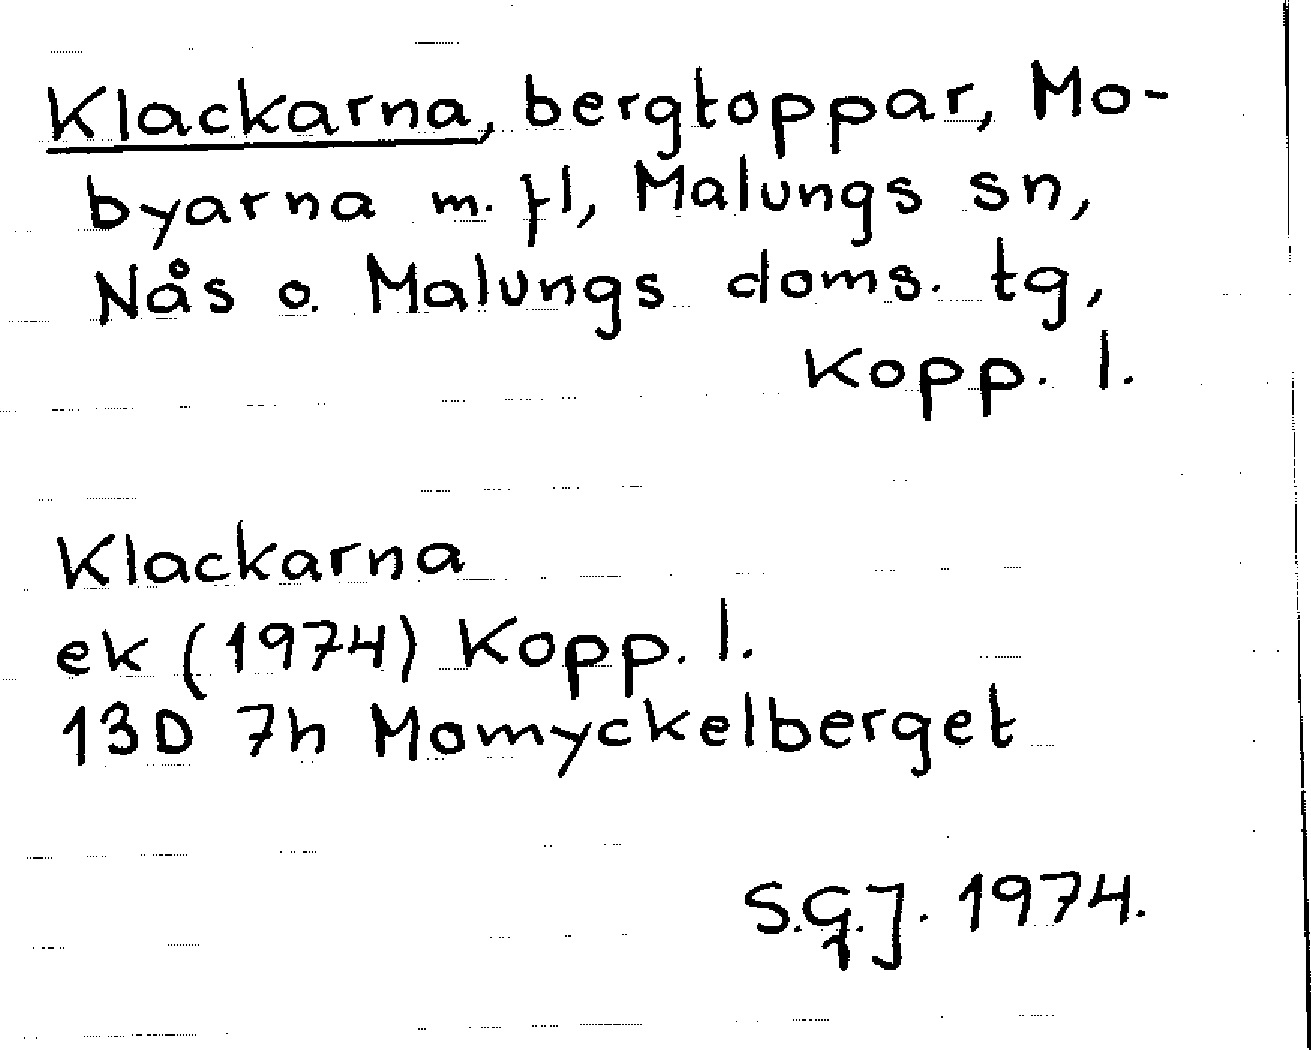 Klackarna, bergtoppar, Mo-
byarna m. fl, Malungs sn,
Nås o. Malungs doms. tg,
Kopp. l.
Klackarna
ek (1974) Kopp. l.
13D 7h Momyckelberget
S.G.J. 1974.